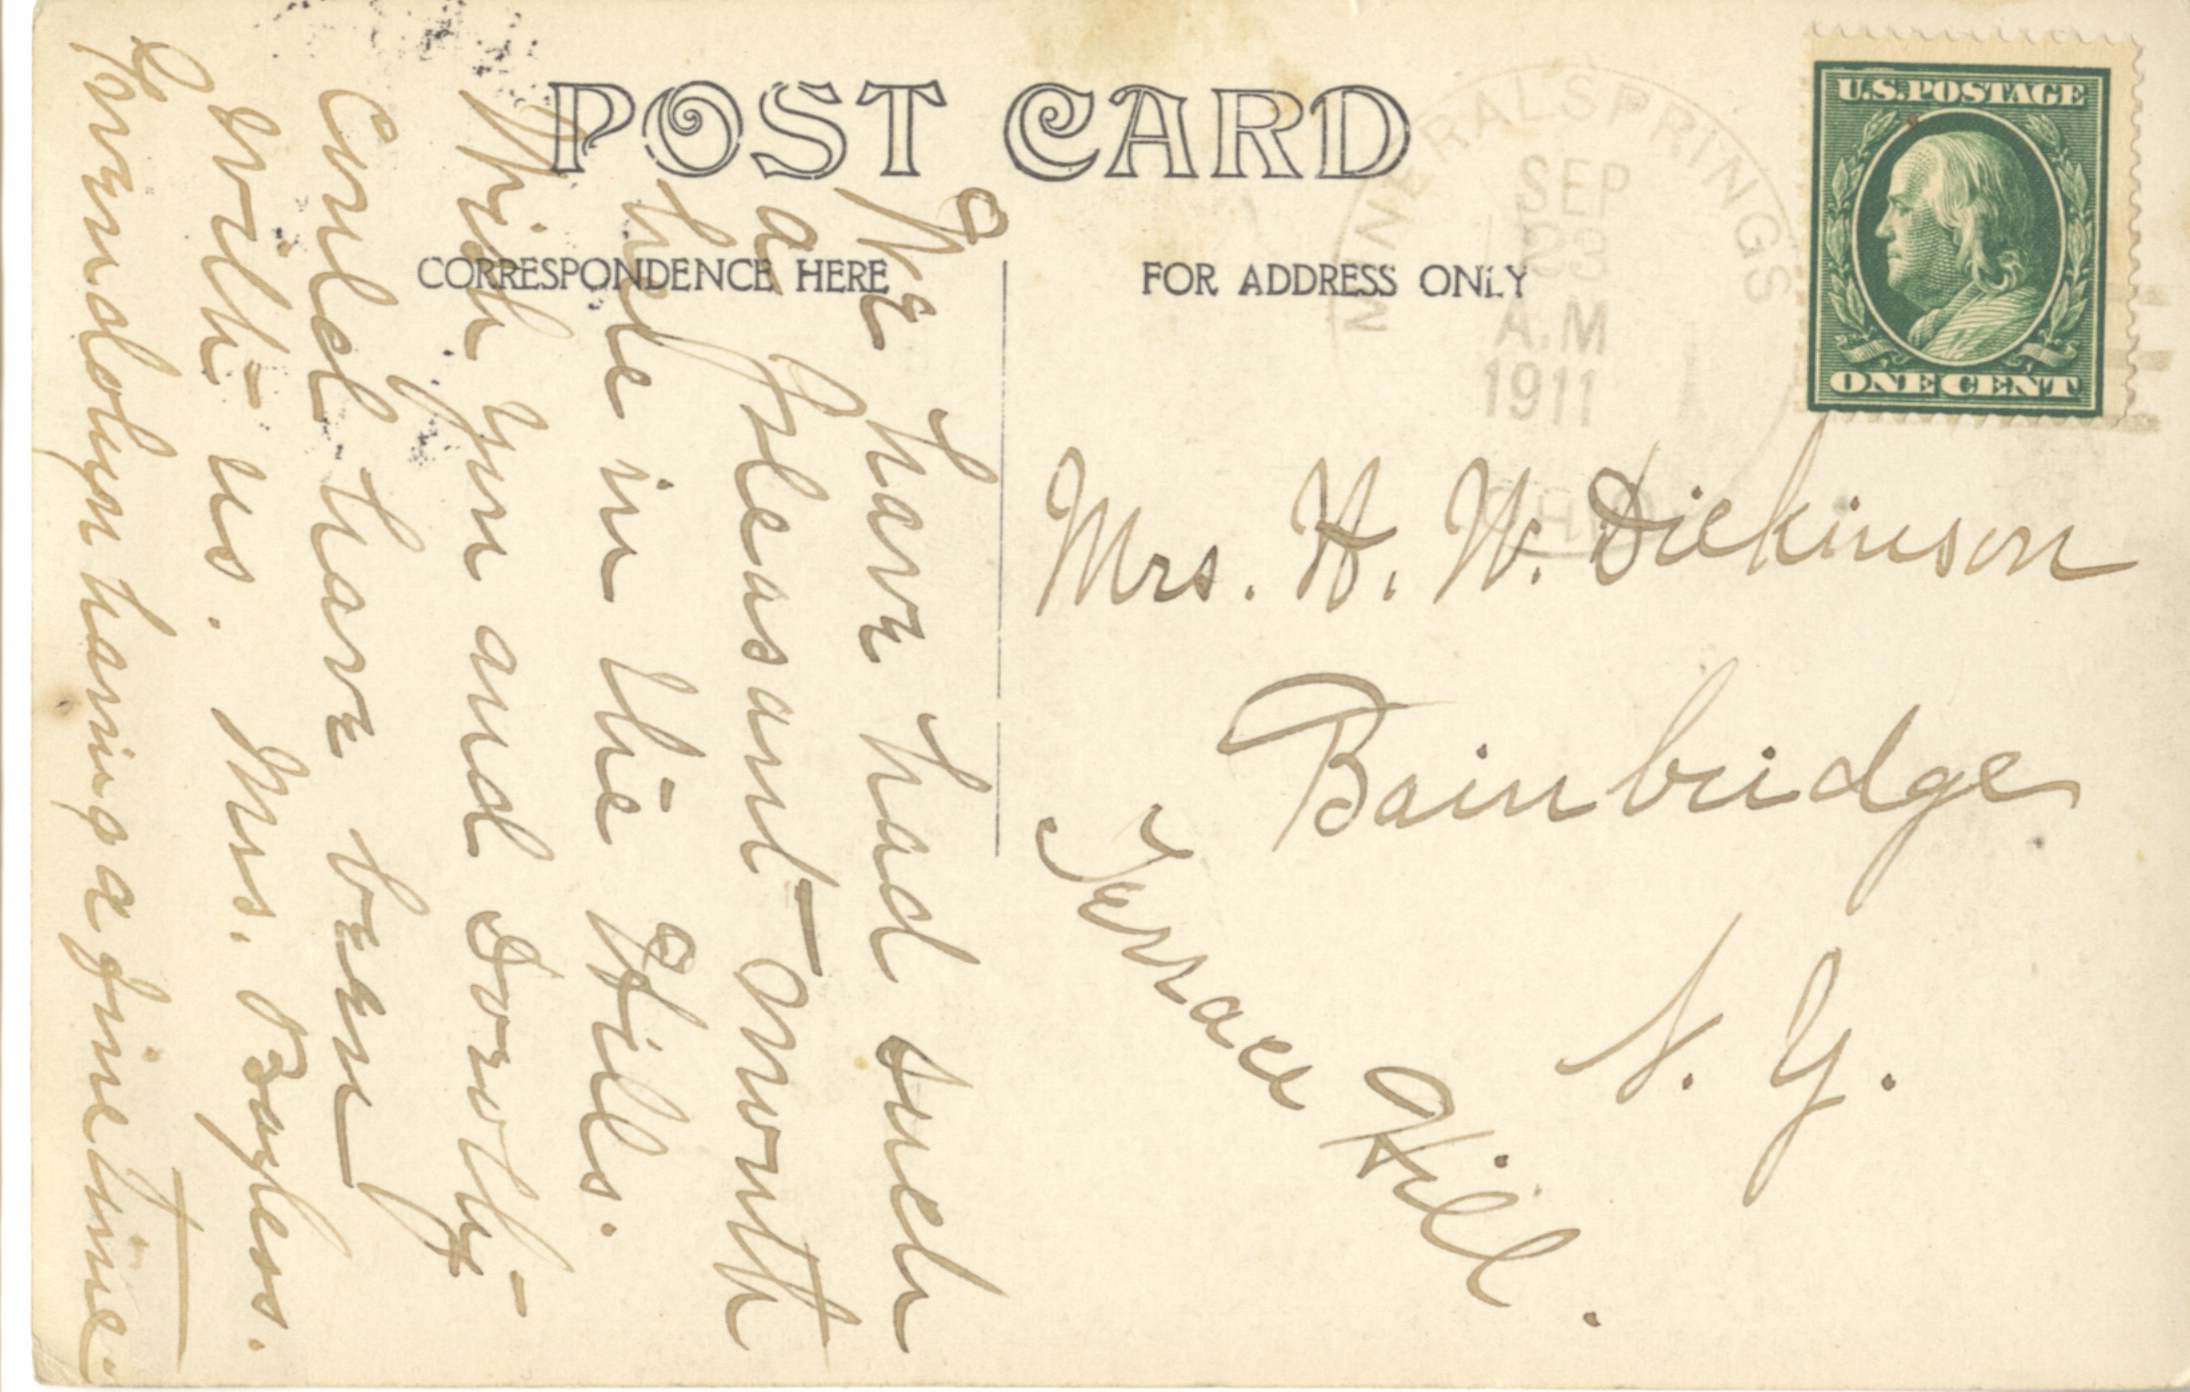 POST CARD
CORRESPONDENCE HERE
FOR ADDRESS ONLY
MINERAL SPRINGS
SEP
23
A.M
1911
OHIO
U.S. POSTAGE
ONE CENT
We have had such
a pleasant month
here in the Hills.
Wish you and Dorothy
could have been
with us. Mrs. Bayless.
Gwendolyn having a fine time.
Mrs. H. W. Dickinson
Bainbridge
N. Y.
Terrace Hill.